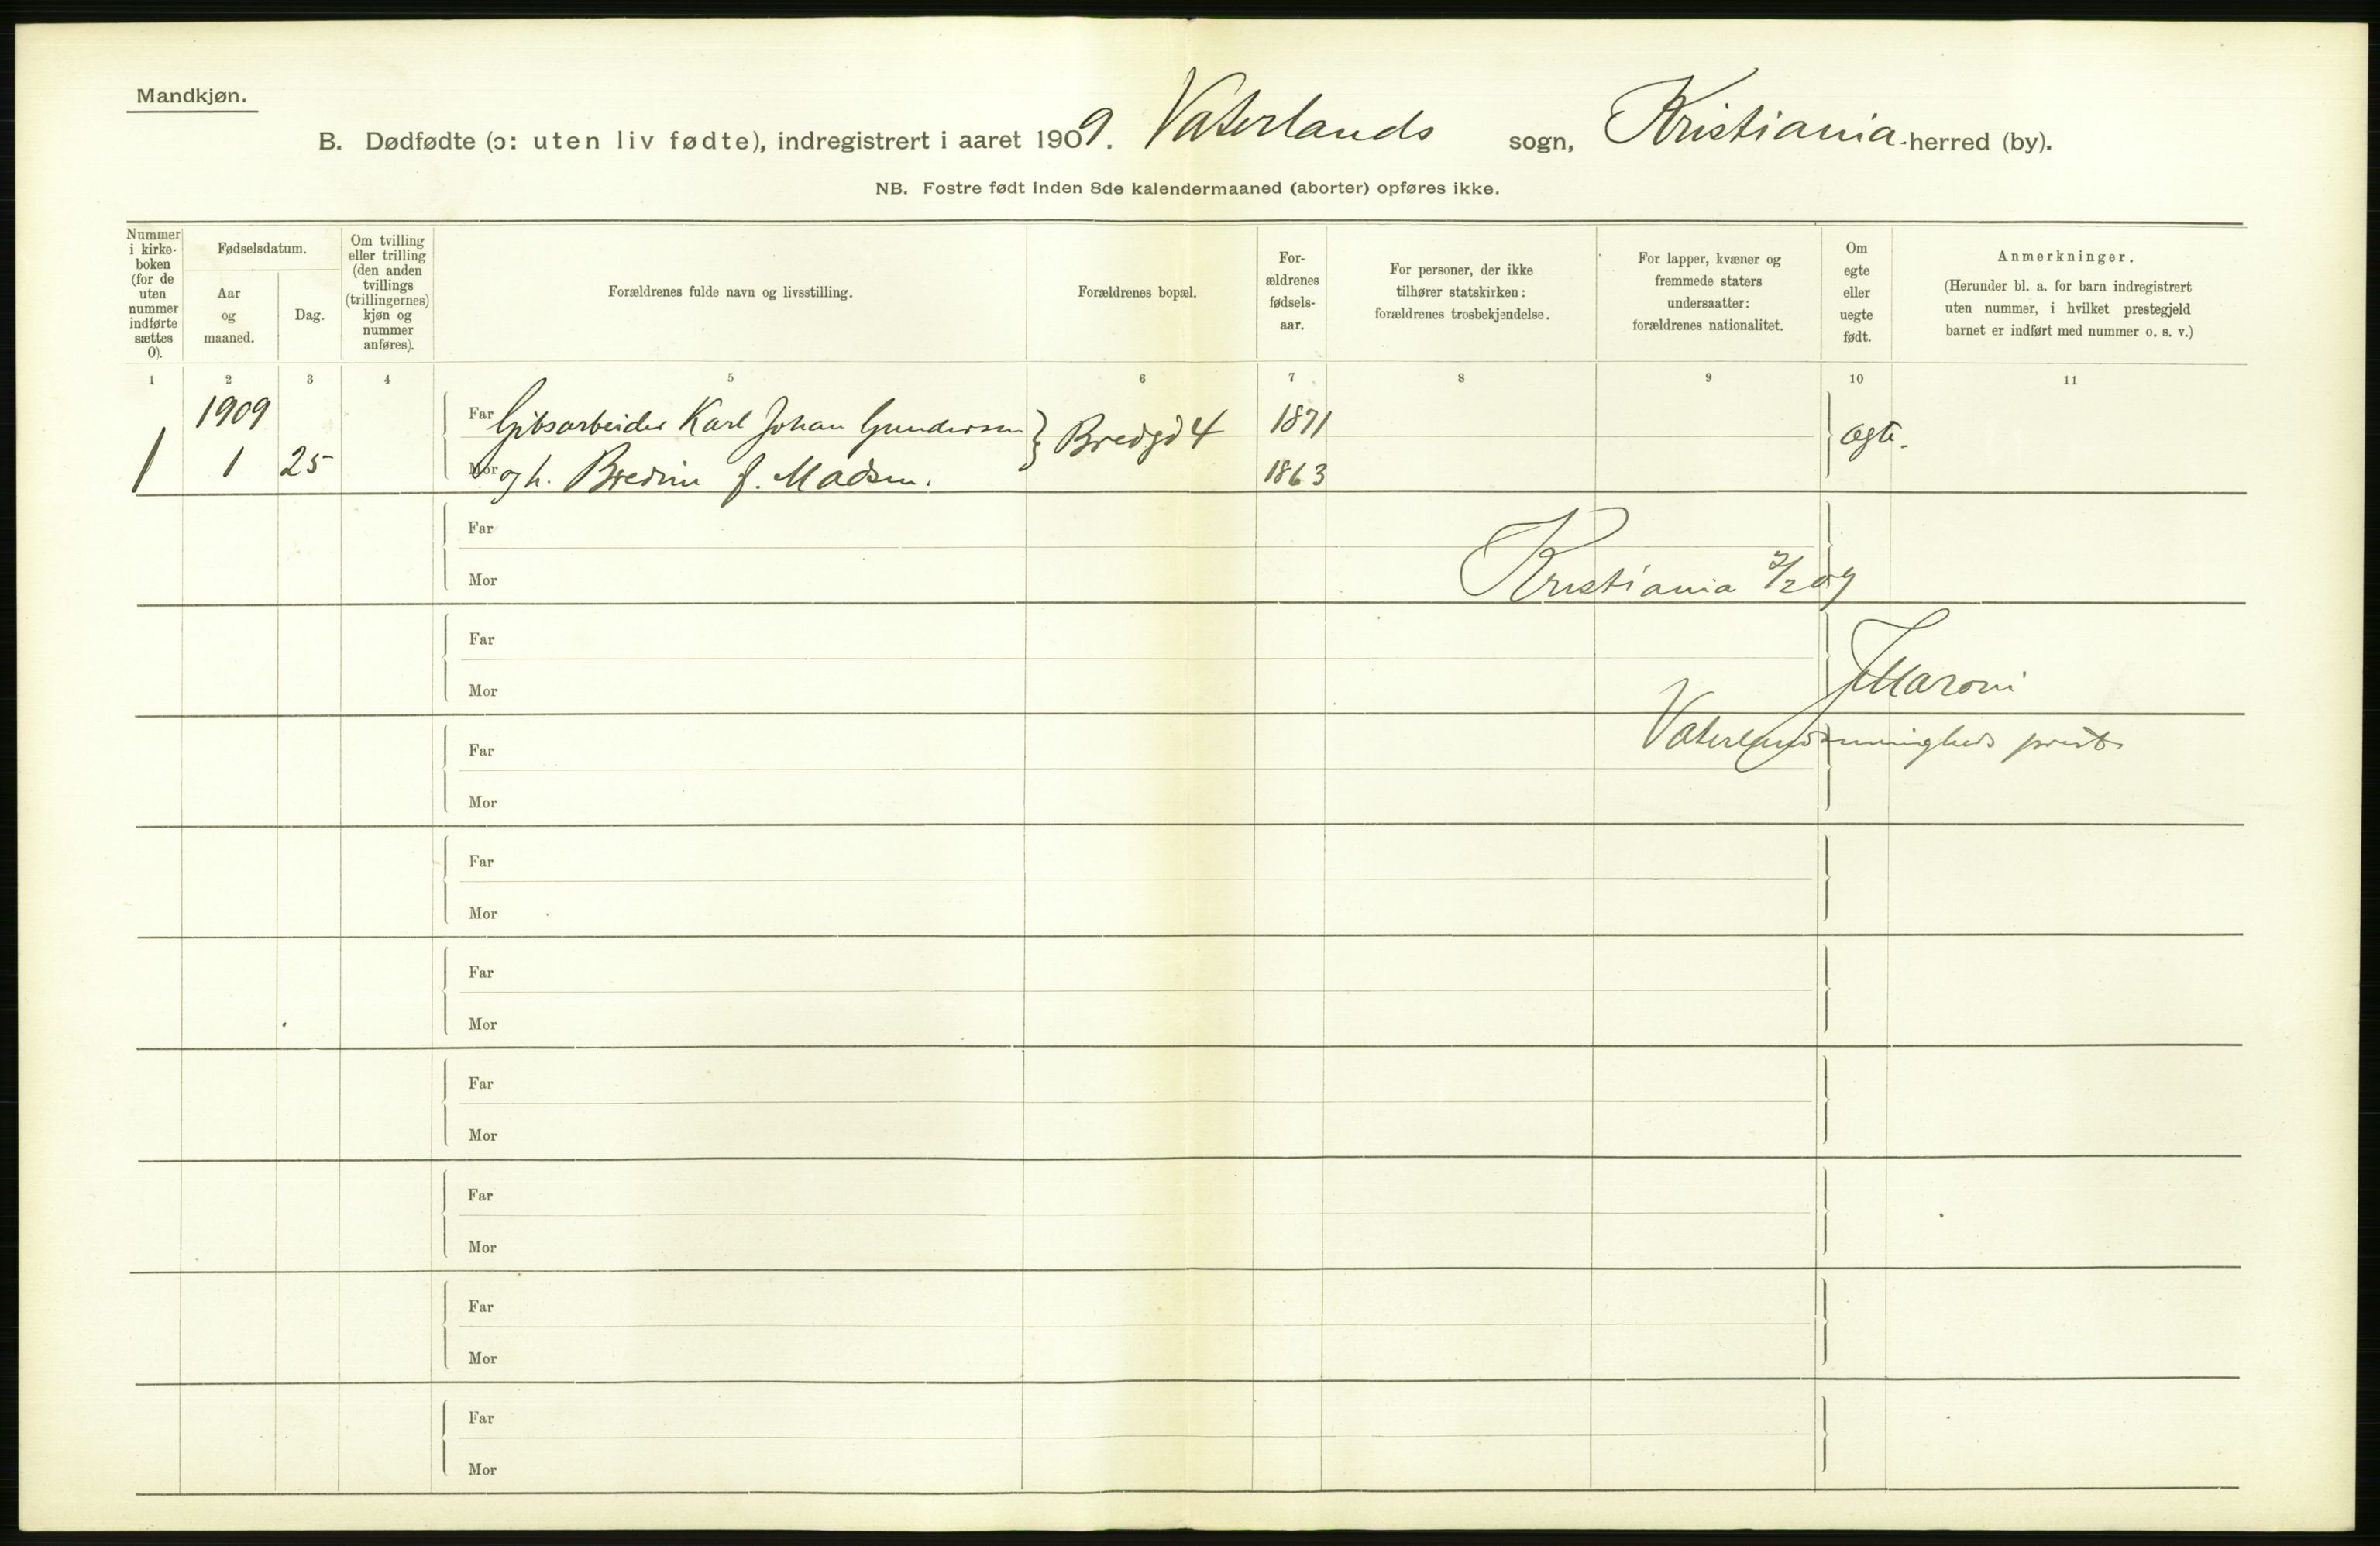 Mandkjøn.
B. Dødfødte (ɔ: uten liv fødte), indregistrert i aaret 1909. Vaterlands sogn, Kristiania-herred (by).
NB. Fostre født inden 8de kalendermaaned (aborter) opføres ikke.
Nummer
i kirke-
boken
(for de
uten
nummer
indførte
sættes
0).
Fødselsdatum.
Aar
og
maaned.
Dag.
Om tvilling
eller trilling
(den anden
tvillings
(trillingernes)
kjøn og
nummer
anføres).
Forældrenes fulde navn og livsstilling.
Forældrenes bopæl.
For-
ældrenes
fødsels-
aar.
For personer, der ikke
tilhører statskirken:
forældrenes trosbekjendelse.
For lapper, kvæner og
fremmede staters
undersaatter:
forældrenes nationalitet.
Om
egte
eller
uegte
født.
Anmerkninger.
(Herunder bl. a. for barn indregistrert
uten nummer, i hvilket prestegjeld
barnet er indført med nummer o. s. v.)
1 2 3 4 5 6 7 8 9 10 11
1909 Far Gibsarbeider Karl Johan Gundersen Bredgd 4 1871 egte.
1 1 25 Mor og h. f. Madsen. 1863
Far
Mor Kristiania 2/2 09
Far
Mor Maroni
Far Vaterlands menigheds prest
Mor
Far
Mor
Far
Mor
Far
Mor
Far
Mor
Far
Mor
Far
Mor